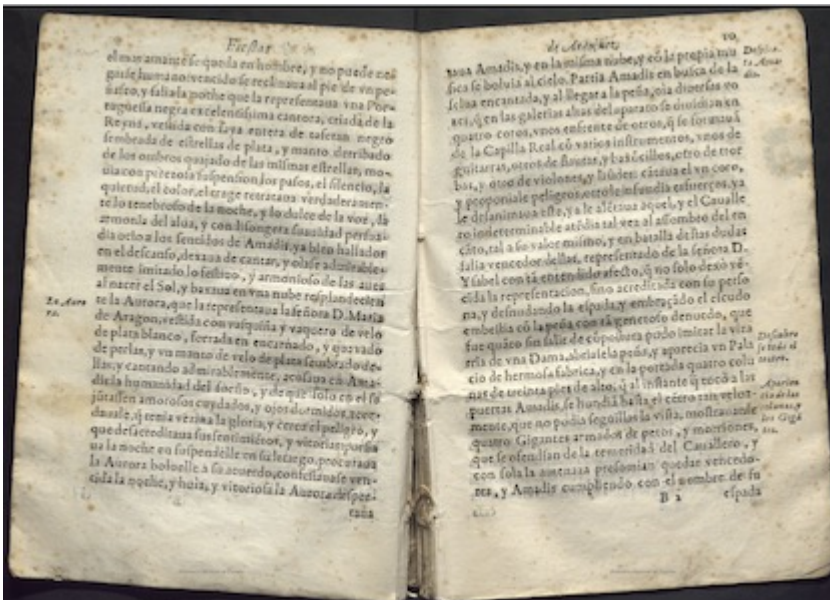 Fiestas
el mas amante se queda en hombre, y no puede ne-
garse humano: vencido se reclinaua al pie de vn pe-
ñasco, y salia la noche que la representaua vna Por-
tuguessa negra excelentissima cantora, criada de la
Reyna, vestida con saya entera de tafetan negro
sembrada de estrellas de plata, y manto derribado
de los ombros quajado de las mismas estrellas, mo-
uia con preciosa suspension los pasos, el silencio, la
quietud, el color, el trage retrataua verdaderamen-
te lo tenebroso de la noche, y lo dulce de la voz, la
armonia del alua, y con lisongera suauidad persua-
dia ocio a los sentidos de Amadis, ya bien hallados
en el descanso, dexaua de cantar, y oiase admirable-
mente imitado lo festiuo, y armonioso de las aues
al nacer el Sol, y baxaua en vna nube resplandecien
La Auro
ra.
te la Aurora, que la representaua la señora D. Maria
de Aragon, vestida con vasquiña y vaquero de velo
de plata blanco, forrada en encarnado, y quaxado
de perlas, y vn manto de velo de plata sembrado de
llas; y cantando admirablemente, acusaua en Ama-
dis la humanidad del sueño, y de que solo en el se
jutassen amorosos cuydados, y ojos dormidos, acor-
dauale, q̃ tenia vezina la gloria, y cerca el peligro, y
que desacreditaua sus sentimiẽtos, y vitorias: porfia
ua la noche en suspendelle en su letargo, procuraua
la Aurora boluelle a su acuerdo, confessauase ven-
cida la noche, y huia, y vitoriosa la Aurora desper-
taua
de Aranjuez,
10.
taua Amadis, y en la misma nube, y cõ la propia mu
sica se boluia al cielo. Partia Amadis en busca de la
Despier-
ta Ama-
dis.
selua encantada, y al llegar a la peña, oia diversas vo
zes, q̃ en las galerias altas del aparato se diuidian en
quatro coros, vnos enfrente de otros, q̃ se formauã
de la Capilla Real cõ varios instrumentos, vnos de
guitarras, otros de flautas, y baxõcillos, otro de tior
bas, y otro de violones, y laúdes: cãtaua el vn coro,
y proponiale peligros, otro le infundia esfuerços, ya
le desanimaua este, ya le alẽtaua aquel, y el Cauelle
ro indeterminable atẽdia tal vez al assombro del en
cãto, tal a su valor mismo, y en batalla destas dudas
salia vencedor dellas, representado de la señora D.
Ysabel con tã entendido afecto, q̃ no solo dexò vẽ-
cida la representacion, sino acreditada con su perso
na, y desnudando la espada, y embraçado el escudo
embestia cõ la peña, con tã generoso denuedo, que
fue quãto sin salir de cõpostura pudo imitar la vizа
rria de vna Dama, abriase la peña, y aparecia vn Pala
Descubre
se todo el
teatro.
cio de hermosa fabrica, y en la portada quatro colu
nas de treinta pies de alto, q̃ al instante q̃ tocò a las
Aparien
cia de las
colunas, y
los Giga
tes.
puertas Amadis, se hundiã hasta el cẽtro tan veloz-
mente, que no podia seguillas la vista, mostrandose
quatro Gigantes armados de petos, y morriones,
que se ofendian de la temeridad del Cauallero, y
con sola la amenaza presomian quedar vencedo-
res, y Amadis cumpliendo con el nombre de su
B 2
espada